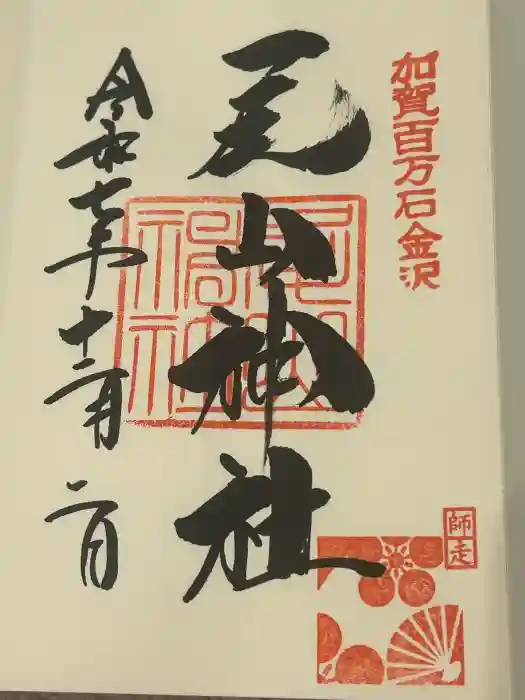 加賀百万石金沢
尾山神社
令和七年十二月二日
師走
尾山神社